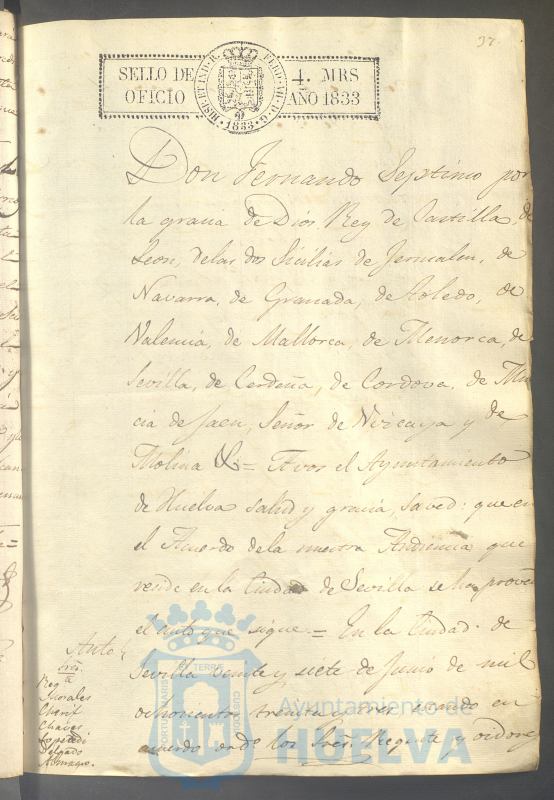 37.
SELLO DE
OFICIO
HISP. ET IND. R. FERD. VII D. G.
· 1833 ·
4. MRS
AÑO 1833
Don Fernando Septimo por
la gracia de Dios Rey de Castilla, de
Leon, delas dos Sicilias de Jerusalen, de
Navarra, de Granada, de Toledo, de
Valencia, de Mallorca, de Menorca, de
Sevilla, de Cerdeña, de Cordova, de Mur
cia de Jaen, Señor de Vizcaya y de
Molina &= A vos el Ayuntamiento
de Huelva salud y gracia, saved: que en
el Acuerdo dela nuestra Audiencia que
reside en la Ciudad de Sevilla se ha provei
el auto que sigue = En la Ciudad de
Auto
Sevilla veinte y siete de Junio de mil
ochocientos treinta y tres estando en
acuerdo ordo los Señs Regente y oidores
sres
Regte
Morales
Cherif
Chaves
Delgado
Almagro
PORTUS MARIS ET TERRE CUSTODIA
Ayuntamiento de
HUELVA